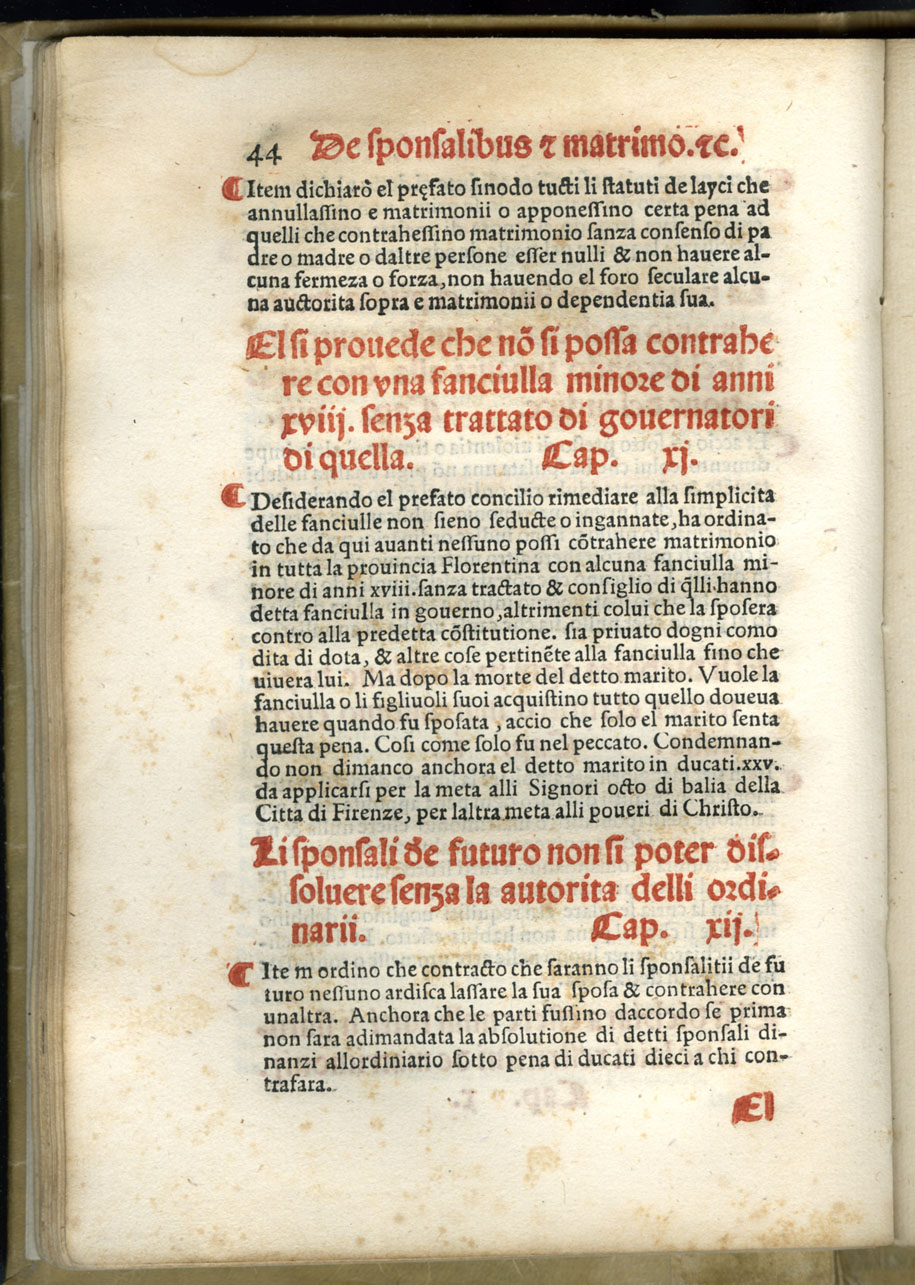 44 De sponsalibus ⁊ matrimo.⁊c.
Item dichiarò el pręfato sinodo tucti li statuti de layci che
annullassino e matrimonii o apponessino certa pena ad
quelli che contrahessino matrimonio sanza consenso di pa
dre o madre o daltre persone esser nulli & non hauere al-
cuna fermeza o forza, non hauendo el foro seculare alcu-
na auctorita sopra e matrimonii o dependentia sua.
El si prouede che nõ si possa contrahe
re con vna fanciulla minore di anni
xviij. senza trattato di gouernatori
di quella. Cap. xj.
Desiderando el prefato concilio rimediare alla simplicita
delle fanciulle non sieno seducte o ingannate, ha ordina-
to che da qui auanti nessuno possi cõtrahere matrimonio
in tutta la prouincia Florentina con alcuna fanciulla mi-
nore di anni xviii. sanza tractato & consiglio di q̃lli.hanno
detta fanciulla in gouerno, altrimenti colui che la sposera
contro alla predetta cõstitutione. sia priuato dogni como
dita di dota, & altre cose pertinẽte alla fanciulla fino che
uiuera lui. Ma dopo la morte del detto marito. Vuole la
fanciulla o li figliuoli suoi acquistino tutto quello doueua
hauere quando fu sposata, accio che solo el marito senta
questa pena. Cosi come solo fu nel peccato. Condemnan-
do non dimanco anchora el detto marito in ducati.xxv.
da applicarsi per la meta alli Signori octo di balia della
Citta di Firenze, per laltra meta alli poueri di Christo.
Li sponsali de futuro non si poter dis-
soluere senza la autorita delli ordi-
narii. Cap. xij.
Ite m ordino che contracto che saranno li sponsalitii de fu
turo nessuno ardisca lassare la sua sposa & contrahere con
unaltra. Anchora che le parti fussino daccordo se prima
non sara adimandata la absolutione di detti sponsali di-
nanzi allordiniario sotto pena di ducati dieci a chi con-
trafara.
El